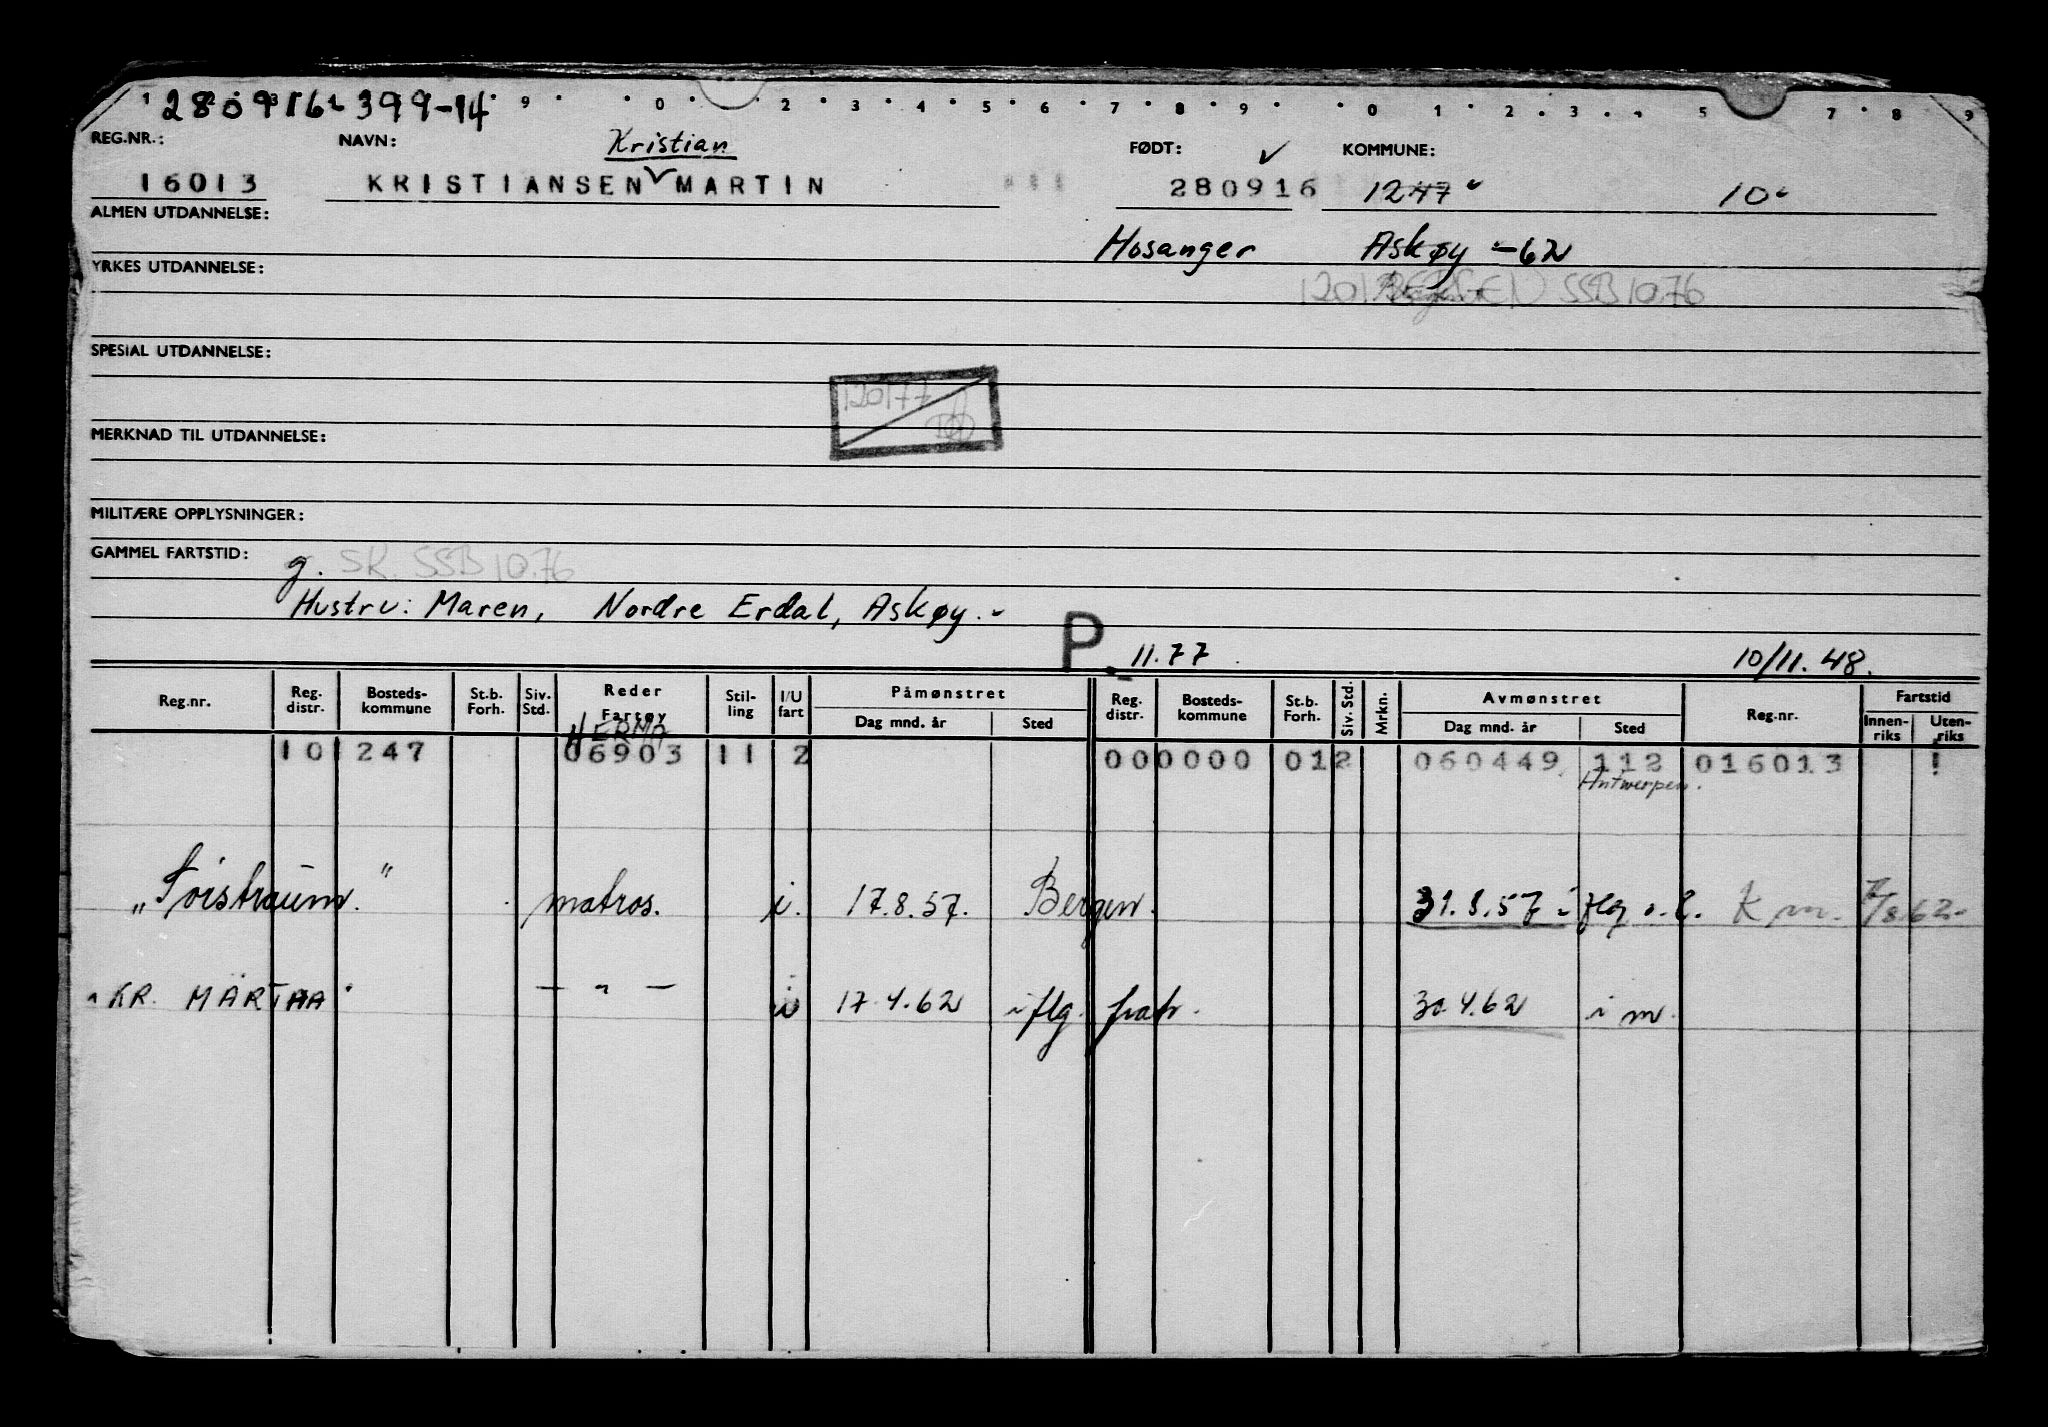 280916-399-14
REG.NR.: NAVN: Kristian FØDT: KOMMUNE:
16013 KRISTIANSEN MARTIN 280916 1247 10
ALMEN UTDANNELSE:
Hosanger Askøy -62
YRKES UTDANNELSE:
1201 BERGEN SSB 10.76
SPESIAL UTDANNELSE:
120177
MERKNAD TIL UTDANNELSE:
MILITÆRE OPPLYSNINGER:
GAMMEL FARTSTID:
g. SK. SSB 10.76
Hustru: Maren, Nordre Erdal, Askøy.
P. 11.77 10/11.48.
Reg.nr. Reg. distr. Bosteds-kommune St.b. Forh. Siv. Std. Reder Fartøy Stil-ling I/U fart Påmønstret Dag mnd. år Sted Reg. distr. Bosteds-kommune St.b. Forh. Siv. Std. Mrkn. Avmønstret Dag mnd. år Sted Reg.nr. Fartstid Innen-riks Uten-riks
HERMA
10 247 06903 11 2 000000 012 060449 112 016013 1
Antwerpen.
matros. i. 17.8.57. Bergen. 31.8.57 i K m. 7/8 62.
"KR. MÄRTHA" — " — i 17.4.62 i flg. 30.4.62 i m.